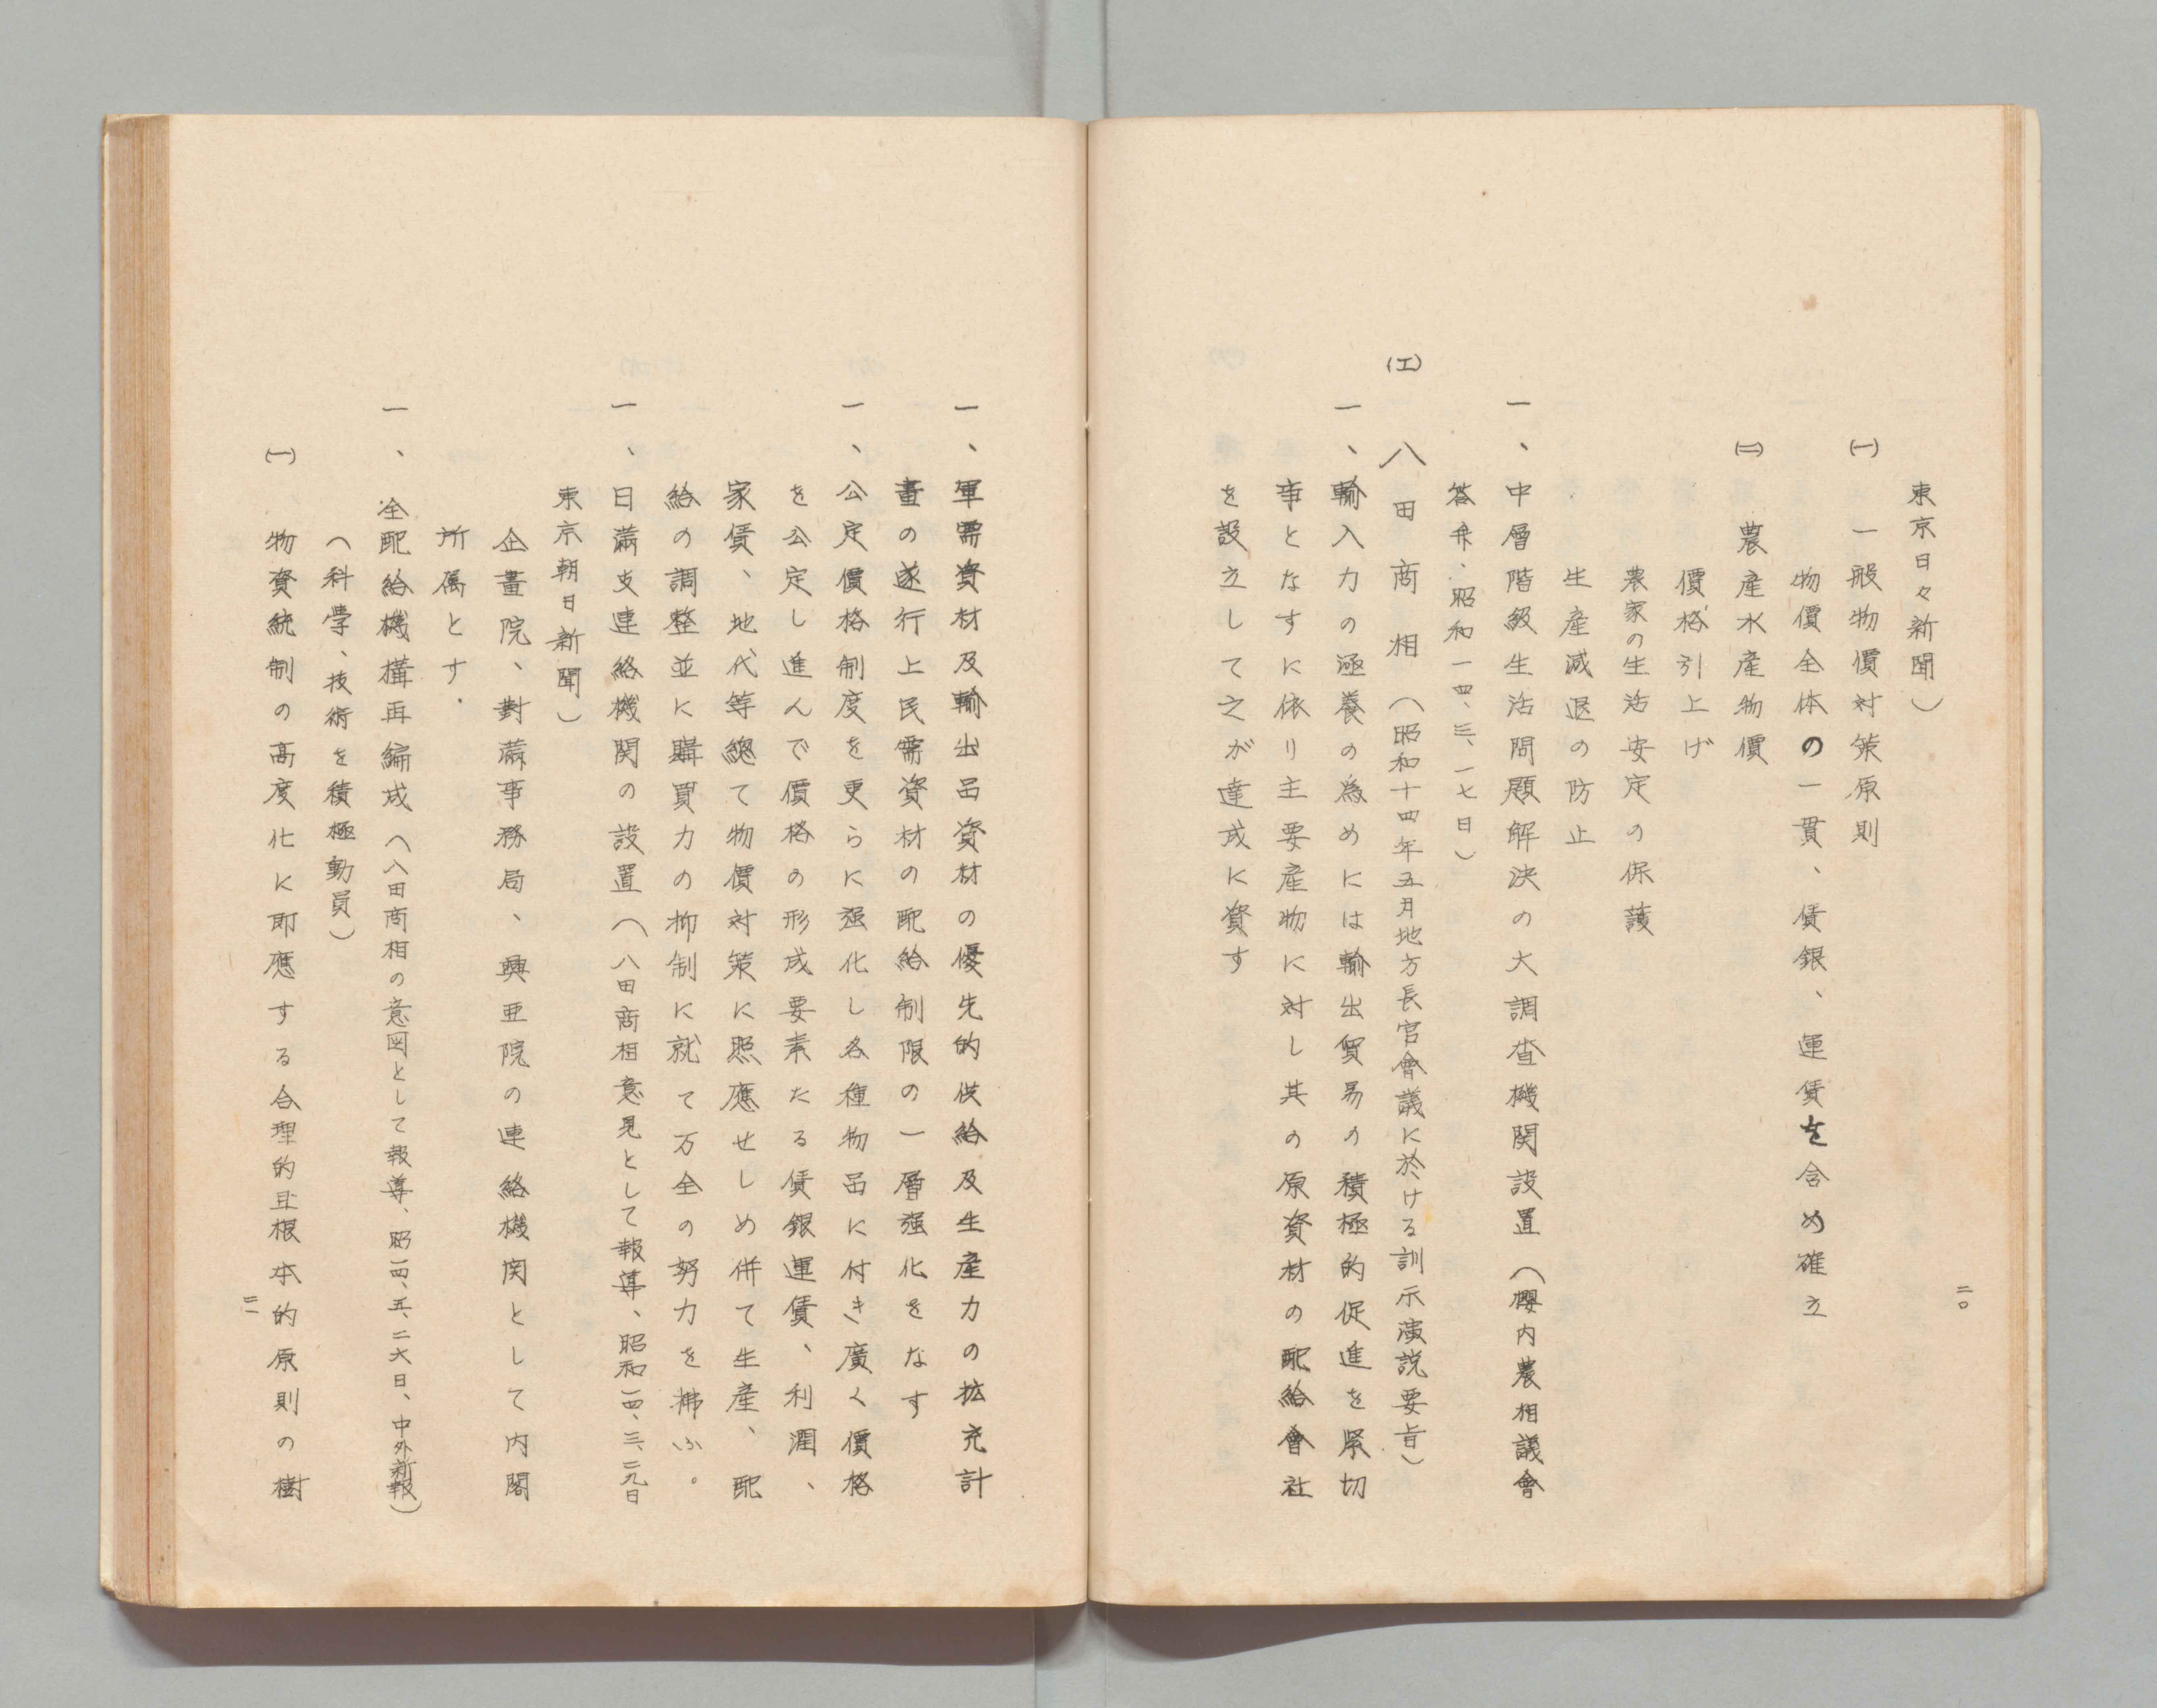 東京日々新聞)
(一) 一般物價対策原則
物價全体の一貫、賃銀、運賃を含め確立
(二) 農産水産物價
價格引上げ
農家の生活安定の保護
生産減退の防止
一、中層階級生活問題解決の大調査機関設置(櫻内農相議會
答弁、昭和一四、三、一七日)
(エ) 八田商相(昭和十四年五月地方長官會議に於ける訓示演説要旨)
一、輸入力の涵養の為めには輸出貿易の積極的促進を緊切
事となすに依り主要産物に対し其の原資材の配給會社
を設立して之が達成に資す
二〇
一、軍需資材及輸出品資材の優先的供給及生産力の拡充計
畫の遂行上民需資材の配給制限の一層强化をなす
一、公定價格制度を更らに强化し各種物品に付き廣く價格
を公定し進んで價格の形成要素たる賃銀運賃、利潤、
家賃、地代等總て物價対策に照應せしめ併て生産、配
給の調整並に購買力の抑制に就て万全の努力を拂ふ。
一、日満支連絡機関の設置(八田商相意見として報導、昭和一四、三、二九日
東京朝日新聞)
企畫院、對満事務局、興亜院の連絡機関として内閣
所属とす.
一、全配給機構再編成(八田商相の意図として報導、昭一四、五、二六日、中外新報)
(科學、技術を積極動員)
(一) 物資統制の高度化に即應する合理的且根本的原則の樹
二一